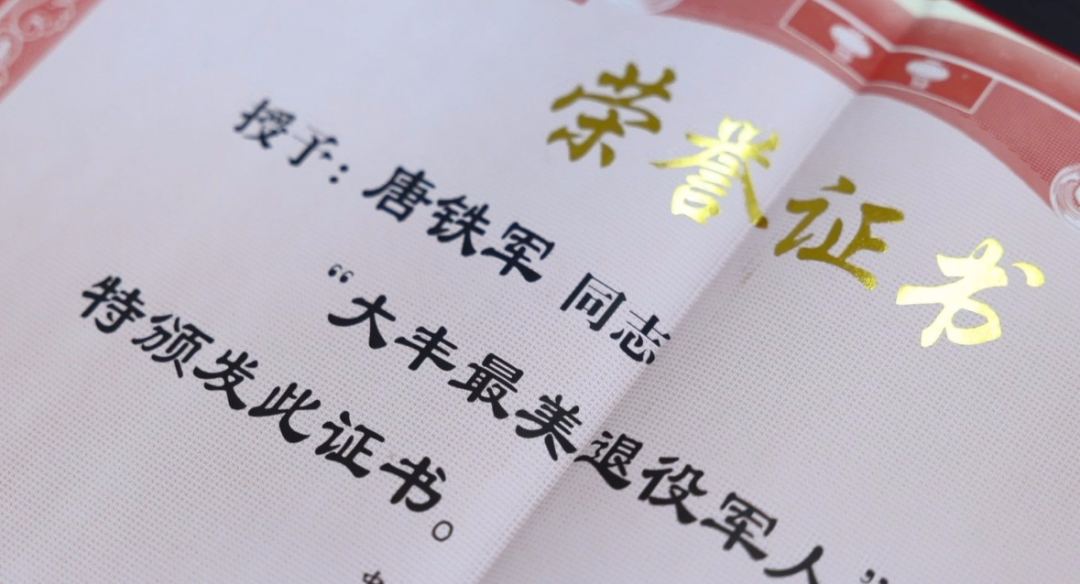 荣誉证书
授予：唐铁军 同志
“大丰最美退役军人”
特颁发此证书。